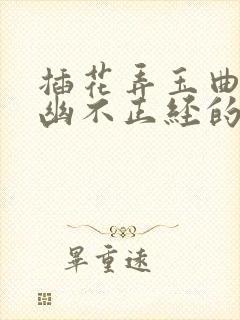 插花弄玉曲
幽不正经的
畢重遠